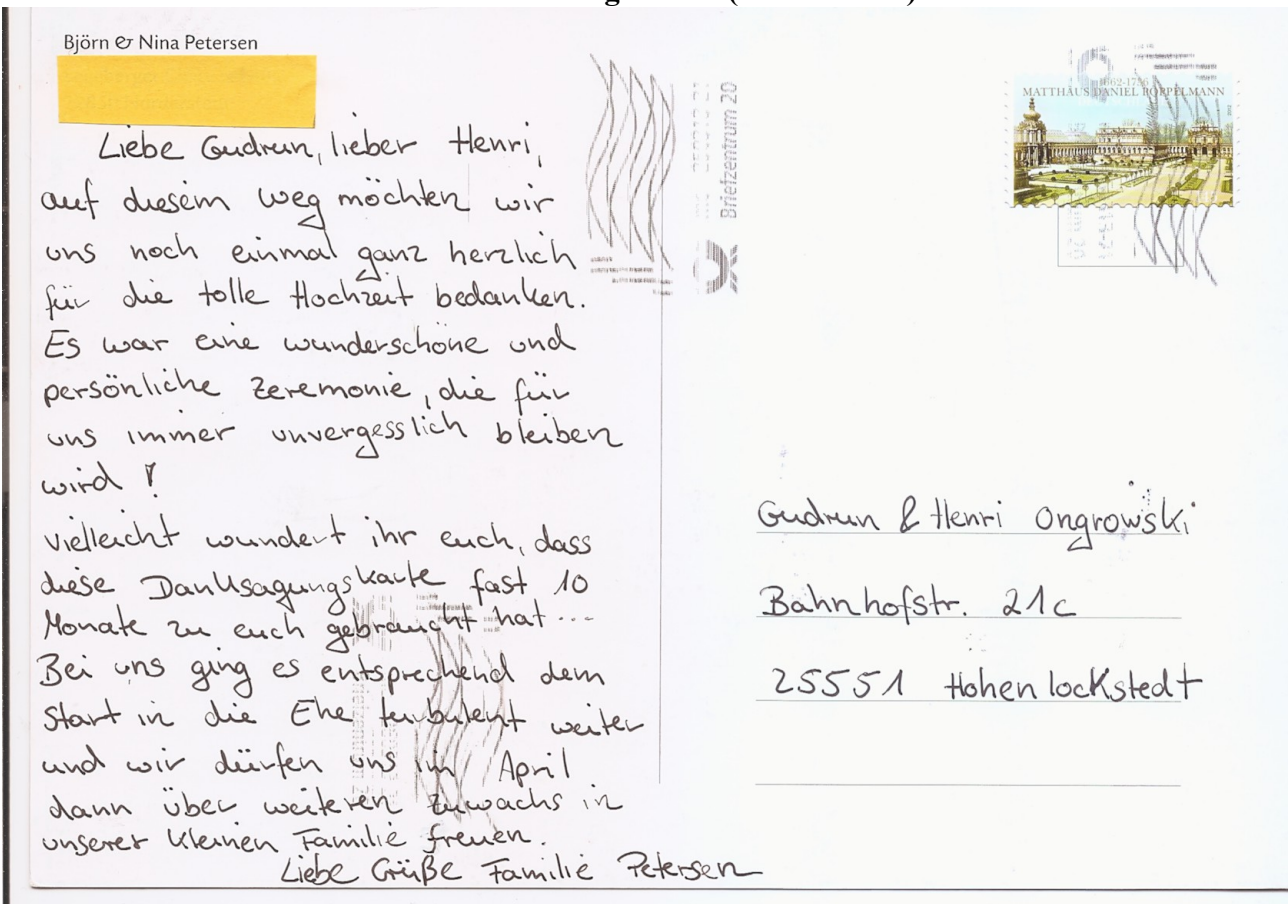 Björn & Nina Petersen
Liebe Gudrun, lieber Henri,
auf diesem Weg möchten wir
uns noch einmal ganz herzlich
für die tolle Hochzeit bedanken.
Es war eine wunderschöne und
persönliche Zeremonie, die für
uns immer unvergesslich bleiben
wird!
vielleicht wundert ihr euch, dass
diese Danksagungskarte fast 10
Monate zu euch gebraucht hat...
Bei uns ging es entsprechend dem
Start in die Ehe turbulent weiter
und wir dürfen uns im April
dann über weiteren Zuwachs in
unserer kleinen Familie freuen.
Liebe Grüße Familie Petersen
Briefzentrum 20
1662-1736
MATTHÄUS DANIEL PÖPPELMANN
Gudrun & Henri Ongrowski
Bahnhofstr. 21c
25551 Hohenlockstedt